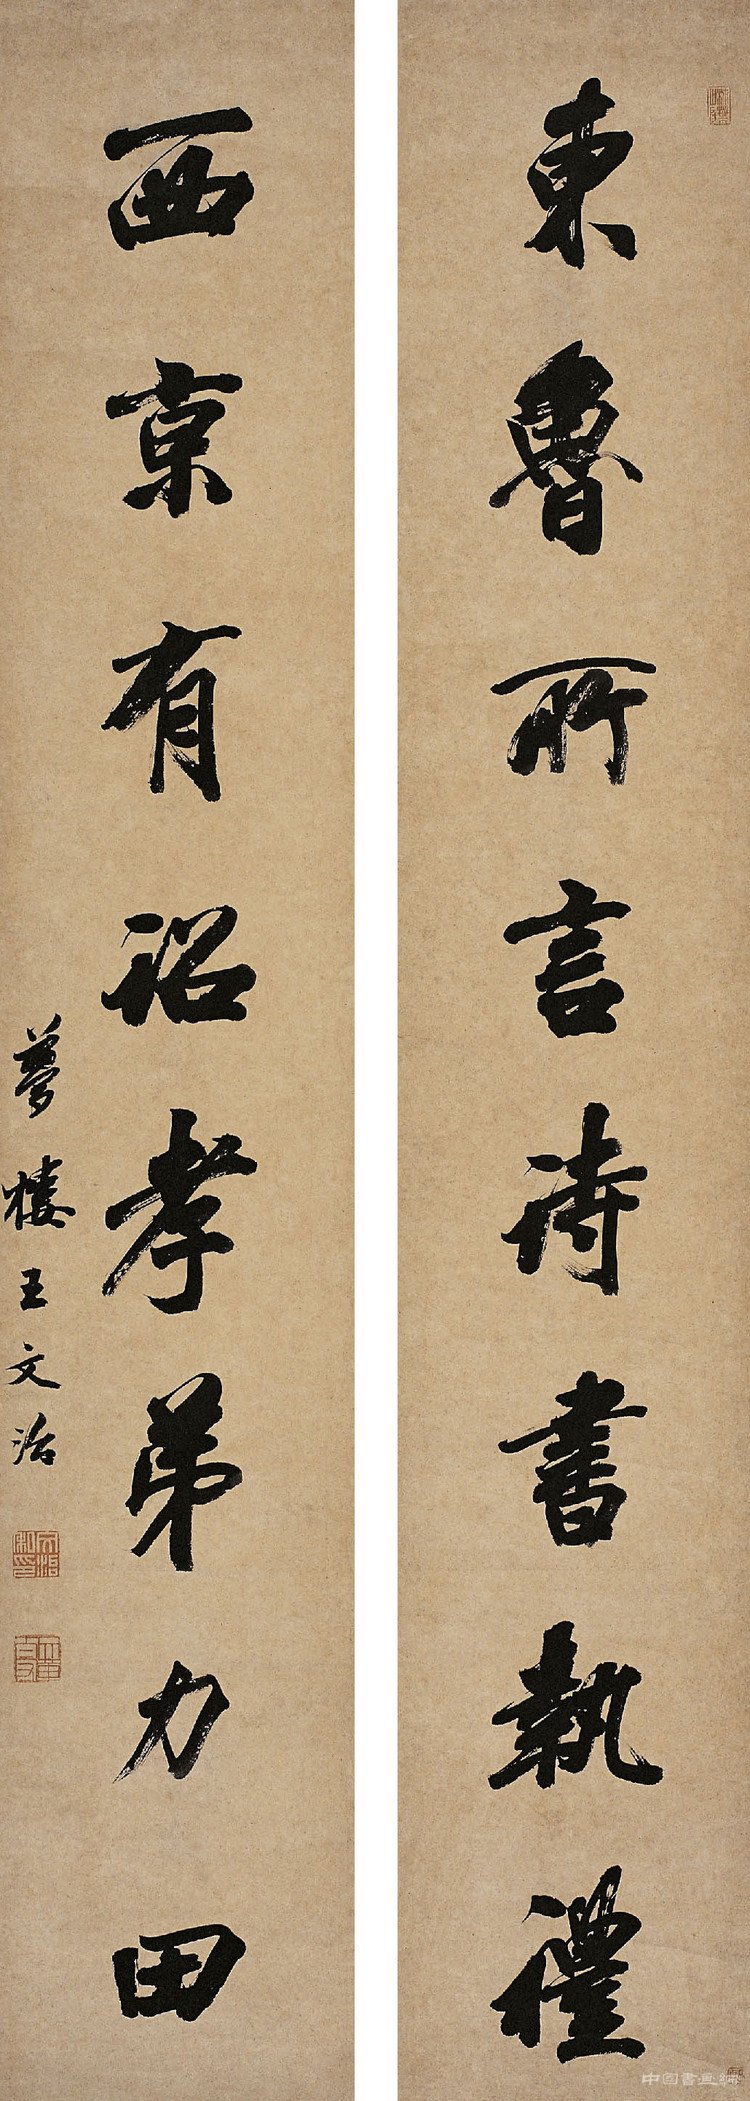 東魯所言詩書執禮
西京有詔孝弟力田
夢樓王文治
中国書画網